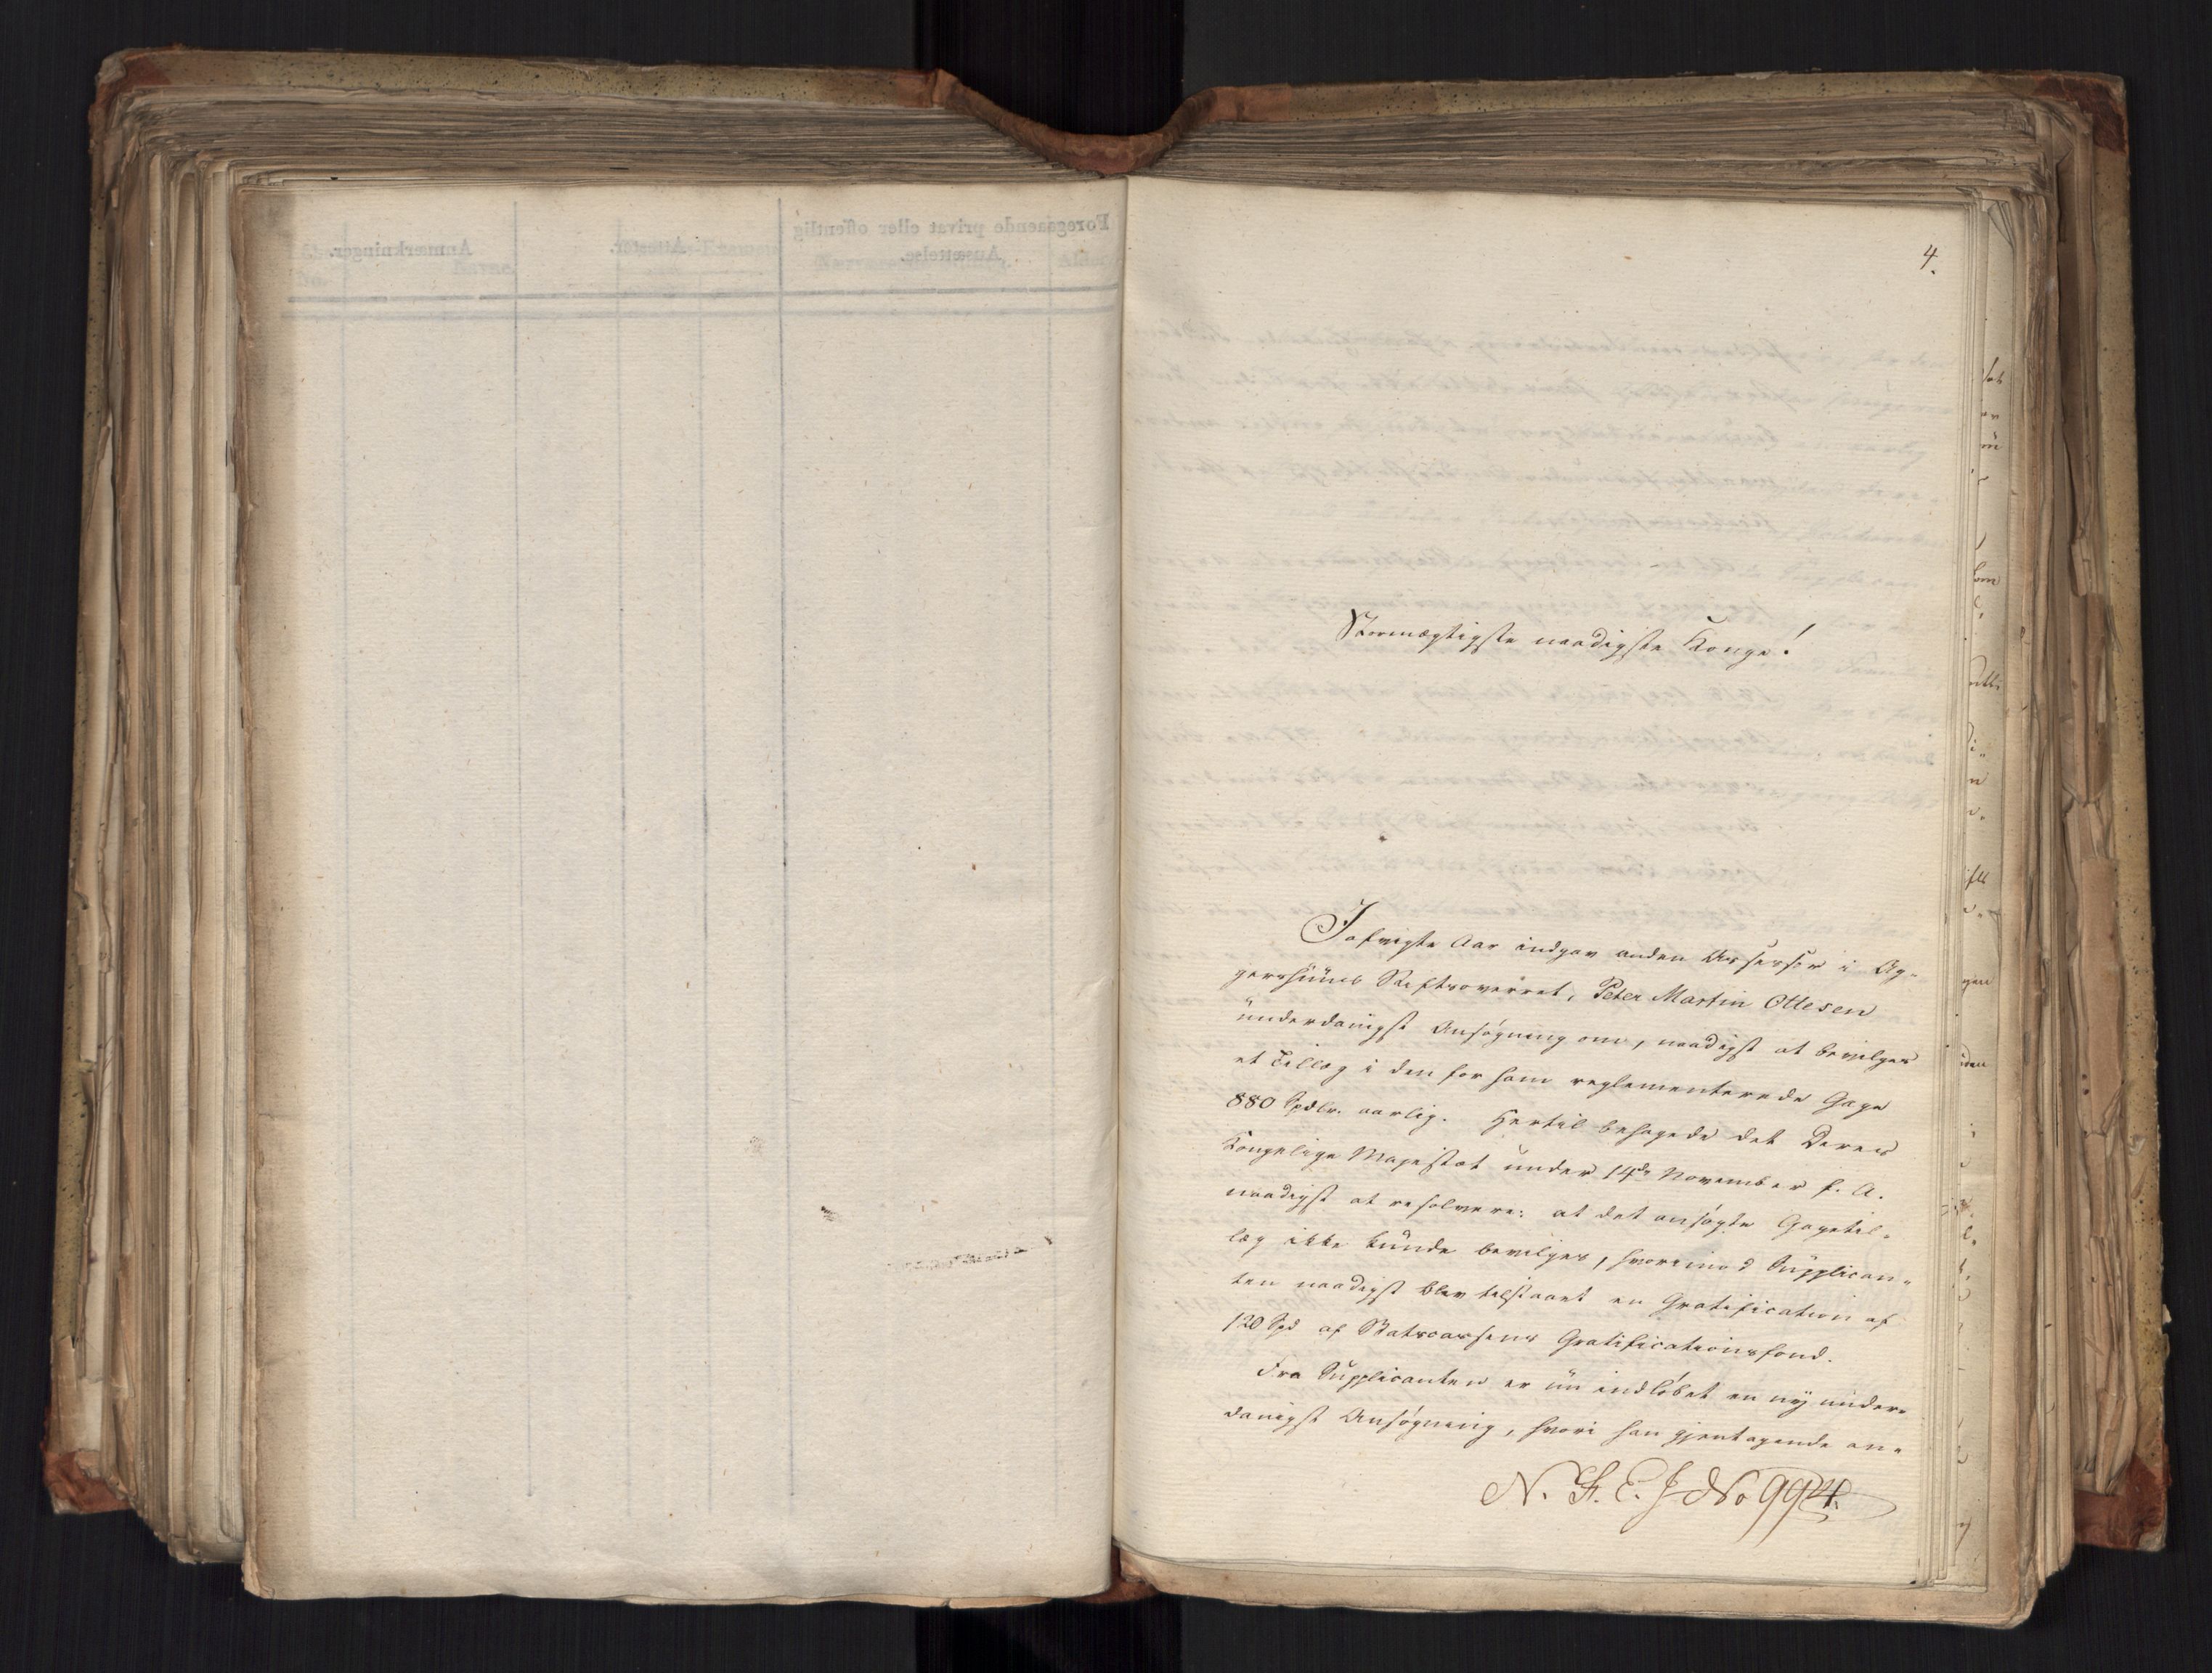 4.
Stormægtigste naadigste Konge!
I afvigte Aar indgav anden Assessor i Ag-
gershuus Stiftsoverret, Peter Martin Ottesen
underdanigst Ansøgning om, naadigst at bevilges
et Tillæg i den for ham reglementerede Gage
880 Spdlr. aarlig. Hertil behagede det Deres
Kongelige Majestæt under 14de November f. A.
naadigst at resolvere: at det ansøgte Gagetil-
læg ikke kunde bevilges, hvorimod Supplican-
ten naadigst blev tilstaaet en Gratification af
120 Spd af Statscassens Gratificationsfond.
Fra Supplicanten er nu indløbet en ny under-
danigst Ansøgning, hvori han gjentagende an-
N. S. E. J No 994.
Foregaaende privat eller offentlig
Ansættelse.
Attester.
Anmærkninger.